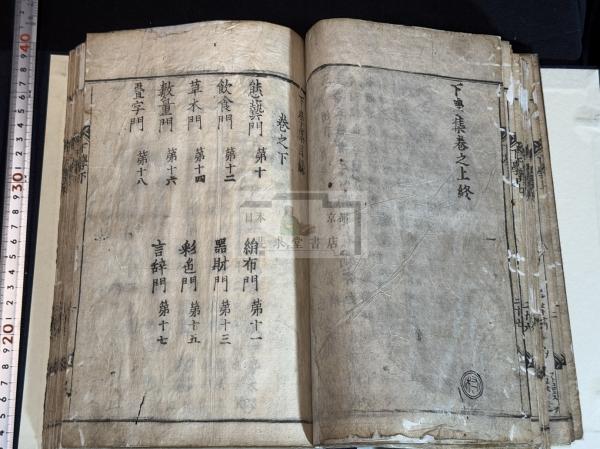 下學集卷之上終
卷之下
態藝門 第十 絹布門 第十一
飲食門 第十二 器財門 第十三
草木門 第十四 彩色門 第十五
數量門 第十六 言辞門 第十七
疊字門 第十八
日本 京都
求堂書店
40
30
20